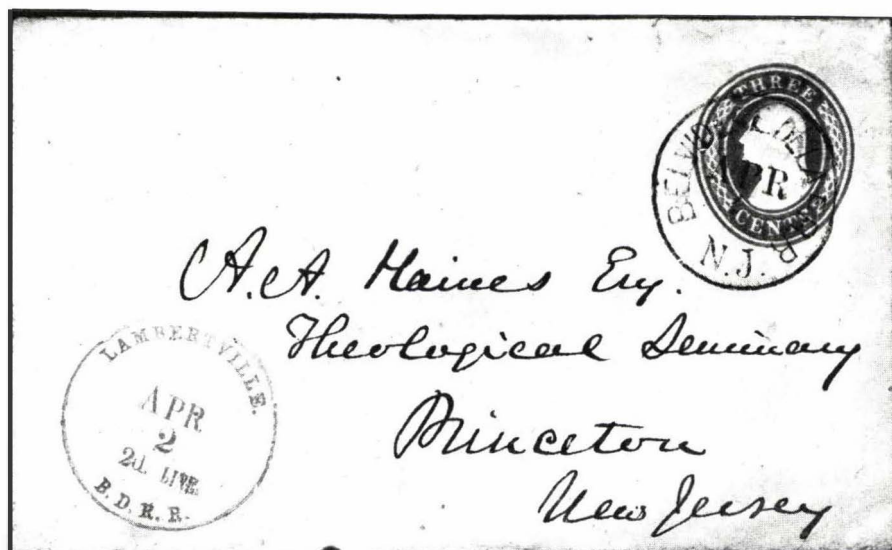 THREE
CENTS
BELVIDERE DELA. R.R.
APR
N.J.
A. A. Haines Esq.
Theological Seminary
Princeton
New Jersey
LAMBERTVILLE.
APR
2
2d. LINE.
B. D. R. R.